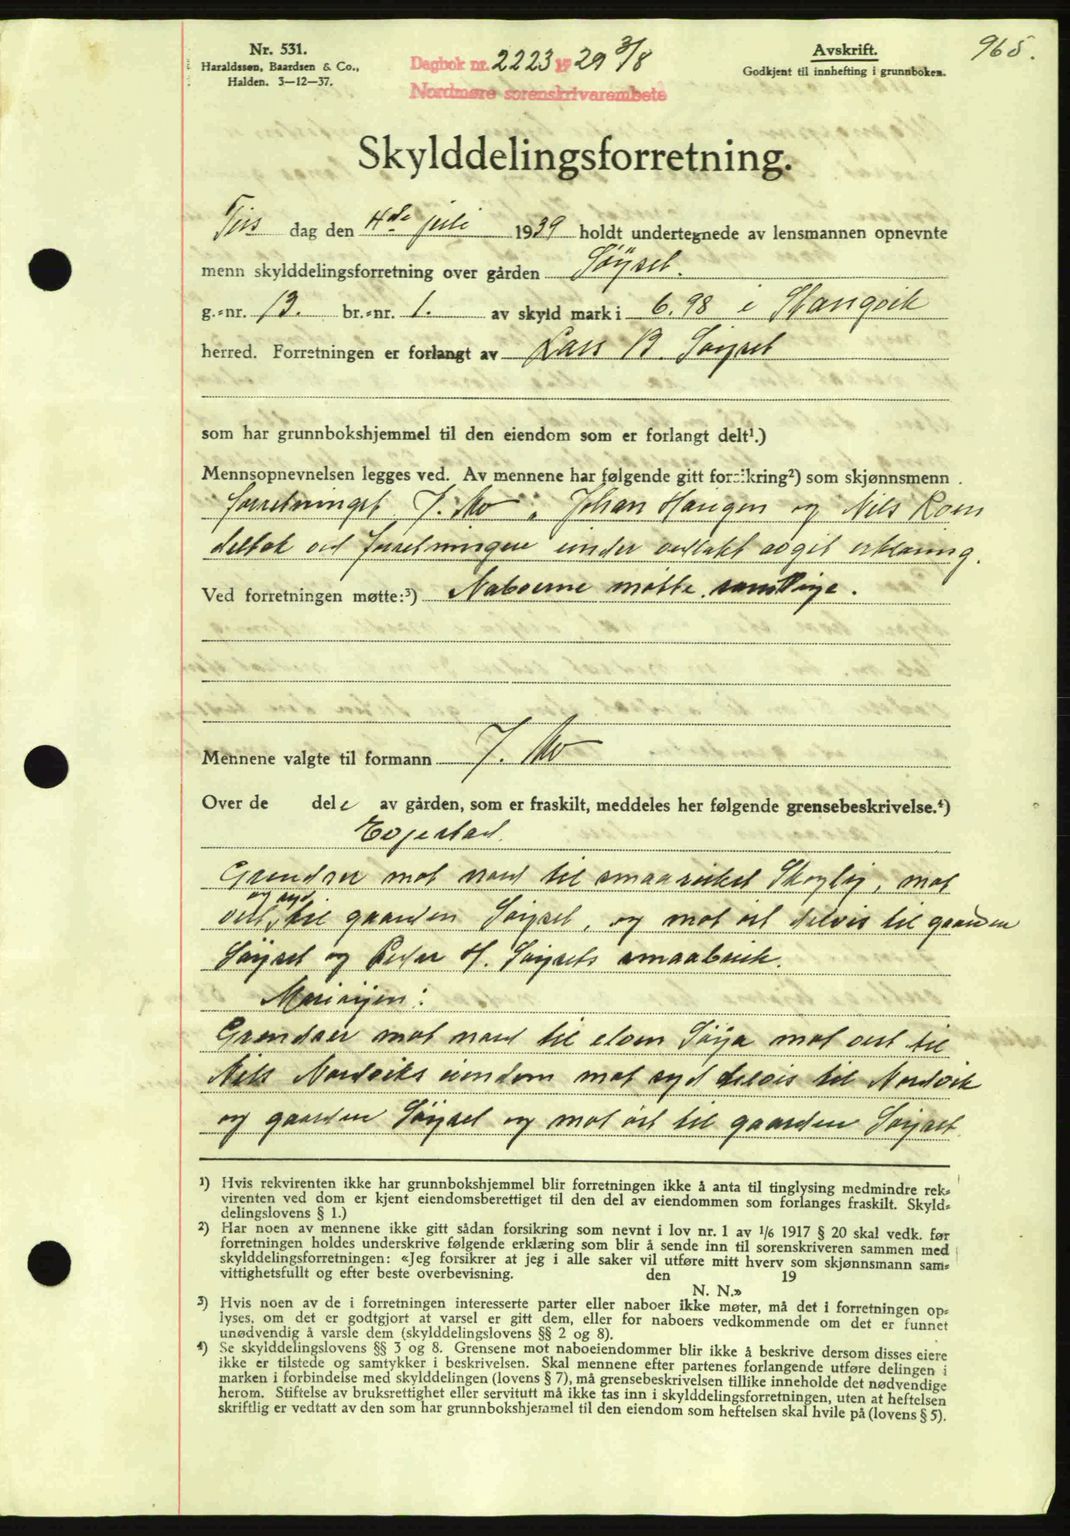 Nr. 531.
Haraldssøn, Baardsen & Co.,
Halden. 3—12—37.
Dagbok nr. 2223 19 29 3/8
Nordmøre sorenskriverembete
Avskrift.
Godkjent til innhefting i grunnboken.
965.
Skylddelingsforretning.
Tirs dag den 4de juli 1939 holdt undertegnede av lensmannen opnevnte
menn skylddelingsforretning over gården Söyset.
g.-nr. 13. br.-nr. 1. av skyld mark i 6.98 i Stangvik
herred. Forretningen er forlangt av Lars B. Söyset
som har grunnbokshjemmel til den eiendom som er forlangt delt¹.)
Mennsopnevnelsen legges ved. Av mennene har følgende gitt forsikring²) som skjønnsmenn
forretningst J. Mo, Johan Haugen og Nils Roen
deltok ved forretningen under vedlakt avgit erklæring.
Ved forretningen møtte:³) Naboerne møtte samtlige.
Mennene valgte til formann J. Mo
Over de dele av gården, som er fraskilt, meddeles her følgende grensebeskrivelse.⁴)
Grendser mot nord til smaabruket Skogly, mot
og syd
vest til gaarden Söyset, og mot öst delvis til gaarden
Söyset og Peder H. Söysets smaabruk.
Grendser mot nord til elven Söya mot vest til
Nils Nordviks eiendom mot syd delvis til Nordvik
og gaarden Söyset og mot öst til gaarden Söyset.
¹) Hvis rekvirenten ikke har grunnbokshjemmel blir forretningen ikke å anta til tinglysing medmindre rek-
virenten ved dom er kjent eiendomsberettiget til den del av eiendommen som forlanges fraskilt. Skyld-
delingslovens § 1.)
²) Har noen av mennene ikke gitt sådan forsikring som nevnt i lov nr. 1 av 1/6 1917 § 20 skal vedk. før
forretningen holdes underskrive følgende erklæring som blir å sende inn til sorenskriveren sammen med
skylddelingsforretningen: «Jeg forsikrer at jeg i alle saker vil utføre mitt hverv som skjønnsmann sam-
vittighetsfullt og efter beste overbevisning. den 19
N. N.»
³) Hvis noen av de i forretningen interesserte parter eller naboer ikke møter, må det i forretningen op-
lyses, om det er godtgjort at varsel er gitt dem, eller for naboers vedkommende om det er funnet
unødvendig å varsle dem (skylddelingslovens §§ 2 og 8).
⁴) Se skylddelingslovens §§ 3 og 8. Grensene mot naboeiendommer blir ikke å beskrive dersom disses eiere
ikke er tilstede og samtykker i beskrivelsen. Skal mennene efter partenes forlangende utføre delingen i
marken i forbindelse med skylddelingen (lovens § 7), må grensebeskrivelsen tillike inneholde det nødvendige
herom. Stiftelse av bruksrettighet eller servitutt må ikke tas inn i skylddelingsforretningen, uten at heftelsen
skriftlig er vedtatt av den som har grunnbokshjemmel til den eiendom som heftelsen skal hvile på (lovens § 5).